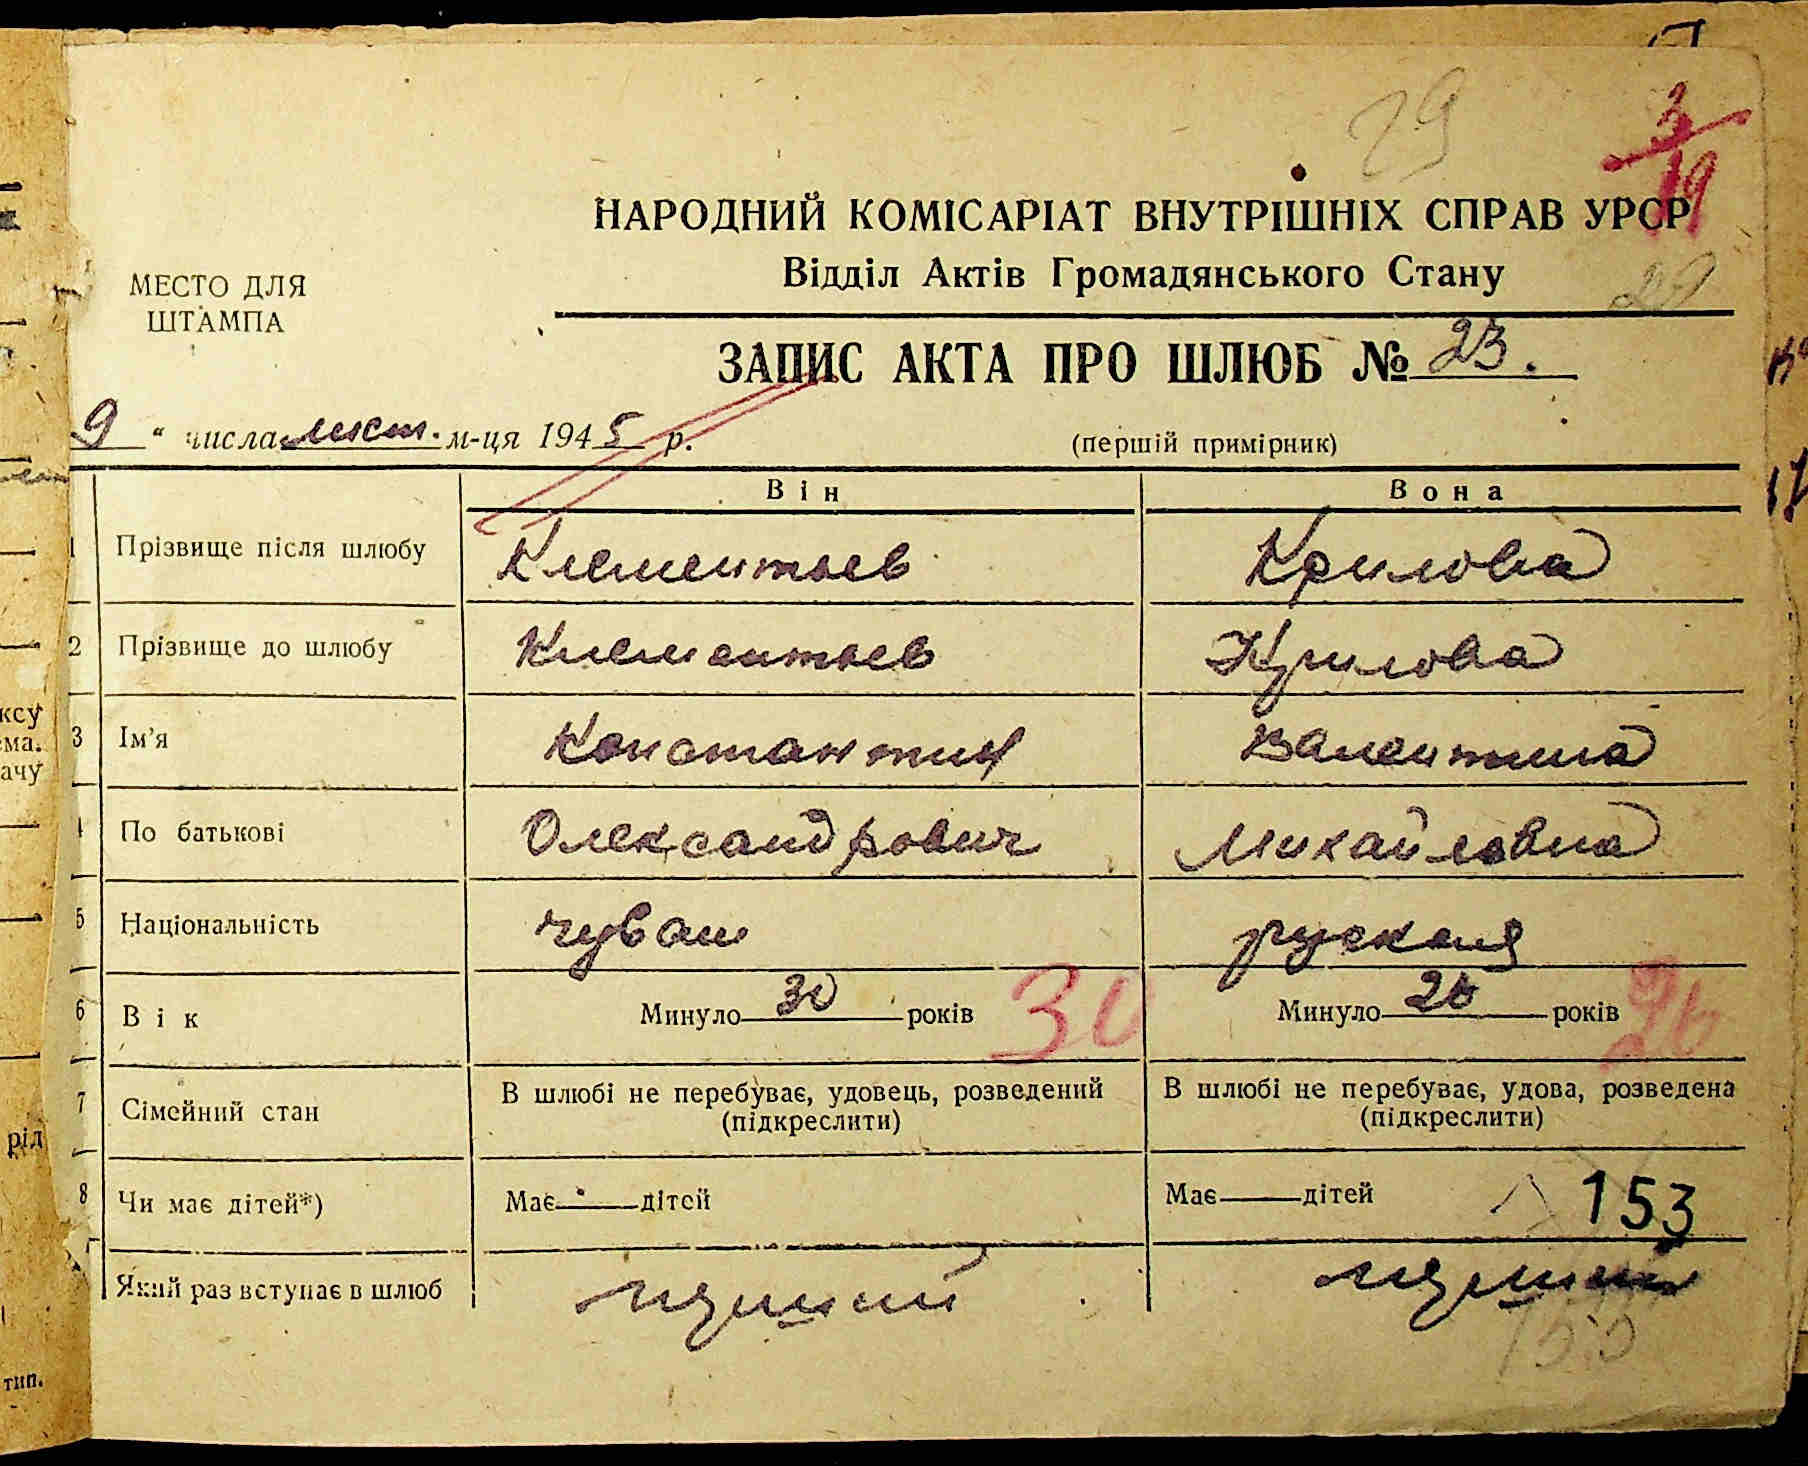 29
3/19
НАРОДНИЙ КОМІСАРІАТ ВНУТРІШНІХ СПРАВ УРСР
Відділ Актів Громадянського Стану
29
МЕСТО ДЛЯ
ШТАМПА
ЗАПИС АКТА ПРО ШЛЮБ № 23.
9 " числа лист. м-ця 1945 р.
(першій примірник)
Він Вона
1 Прізвище після шлюбу Клементьев Крилова
2 Прізвище до шлюбу Клементьев Крилова
3 Ім'я Константин Валентина
По батькові Олександрович Михайловна
5 Національність чуваш руская
6 Вік Минуло 30 років 30 Минуло 26 років 26
7 Сімейний стан В шлюбі не перебуває, удовець, розведений (підкреслити) В шлюбі не перебуває, удова, розведена (підкреслити)
8 Чи має дітей*) Має — дітей Має — дітей
153
Який раз вступає в шлюб перший перший
153
ксу
ма.
ачу
рід
тип.